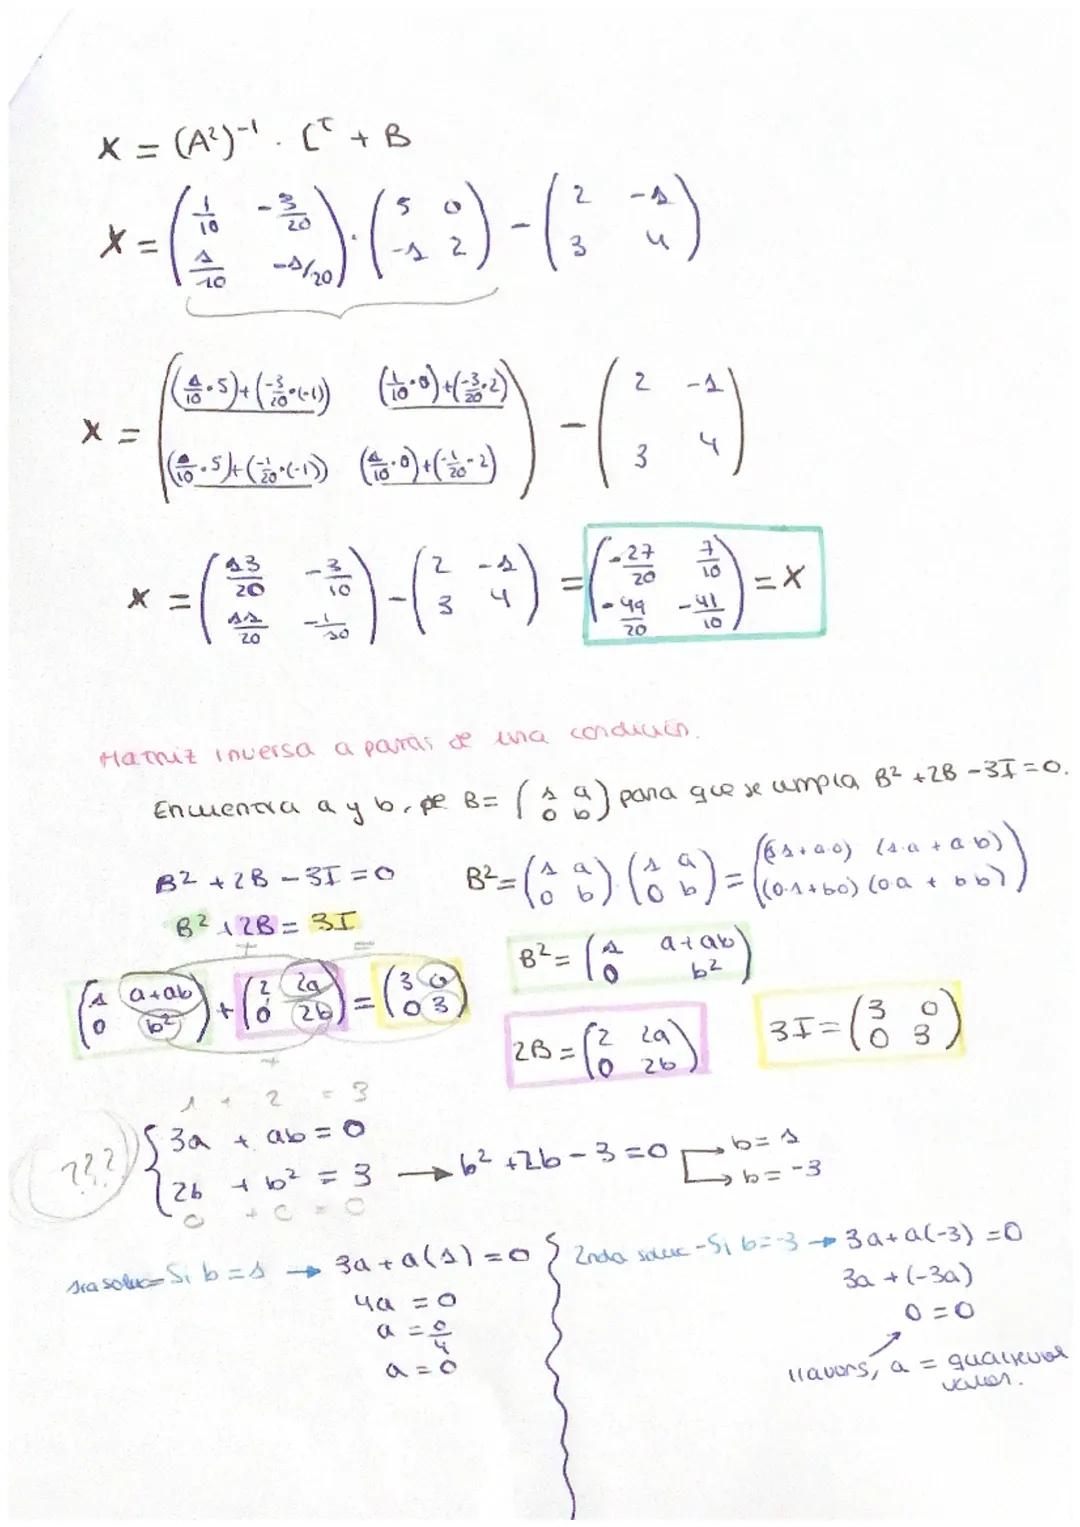 X = (A²)⁻¹ · Cᵀ + B
X = (1/10 -3/20 ; 1/10 -1/20) · (5 0 ; -1 2) - (2 -1 ; 3 4)
X = ((1/10·5)+(-3/20·(-1)) (1/10·0)+(-3/20·2) ; (1/10·5)+(-1/20·(-1)) (1/10·0)+(-1/20·2)) - (2 -1 ; 3 4)
X = (13/20 -3/10 ; 11/20 -1/10) - (2 -1 ; 3 4) = (-27/20 7/10 ; -49/20 -41/10) = X
Matriz inversa a partir de una condición.
Encuentra a y b, de B = (1 a ; 0 b) para que se cumpla B² + 2B - 3I = 0.
B² + 2B - 3I = 0
B² = (1 a ; 0 b) · (1 a ; 0 b) = ((1·1+a·0) (1·a + a b) ; (0·1+b0) (0·a + b b))
B² + 2B = 3I
+ =
B² = (1 a+ab ; 0 b²)
(1 a+ab ; 0 b²) + (2 2a ; 0 2b) = (3 0 ; 0 3)
+
2B = (2 2a ; 0 2b)
3I = (3 0 ; 0 3)
1 + 2 = 3
??? { 3a + ab = 0
2b + b² = 3 → b² + 2b - 3 = 0 → b = 1
→ b = -3
0 + 0 = 0
1ra soluc - Si b = 1 → 3a + a(1) = 0
4a = 0
a = 0/4
a = 0
2nda soluc - Si b = -3 → 3a + a(-3) = 0
3a + (-3a)
0 = 0
llavors, a = qualsevol
valor.